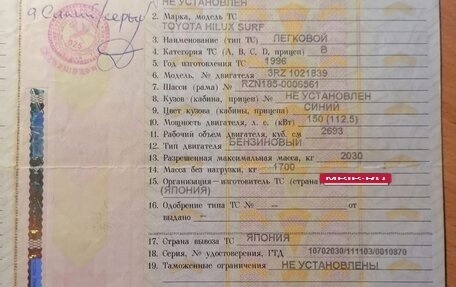 НЕ УСТАНОВЛЕН
2. Марка, модель ТС
TOYOTA HILUX SURF
3. Наименование (тип ТС) ЛЕГКОВОЙ
4. Категория ТС (A, B, C, D, прицеп) B
5. Год изготовления ТС 1996
6. Модель, № двигателя 3RZ 1021839
7. Шасси (рама) № RZN185-0006561
8. Кузов (кабина, прицеп) № НЕ УСТАНОВЛЕН
9. Цвет кузова (кабины, прицепа) СИНИЙ
10. Мощность двигателя, л. с. (кВт) 150 (112.5)
11. Рабочий объем двигателя, куб. см 2693
12. Тип двигателя БЕНЗИНОВЫЙ
13. Разрешенная максимальная масса, кг 2030
14. Масса без нагрузки, кг 1700
15. Организация—изготовитель ТС (страна)
(ЯПОНИЯ)
16. Одобрение типа ТС № — — от
выдано —
17. Страна вывоза ТС ЯПОНИЯ
18. Серия, № удостоверения, ГТД 10702030/111103/0010870
19. Таможенные ограничения НЕ УСТАНОВЛЕНЫ